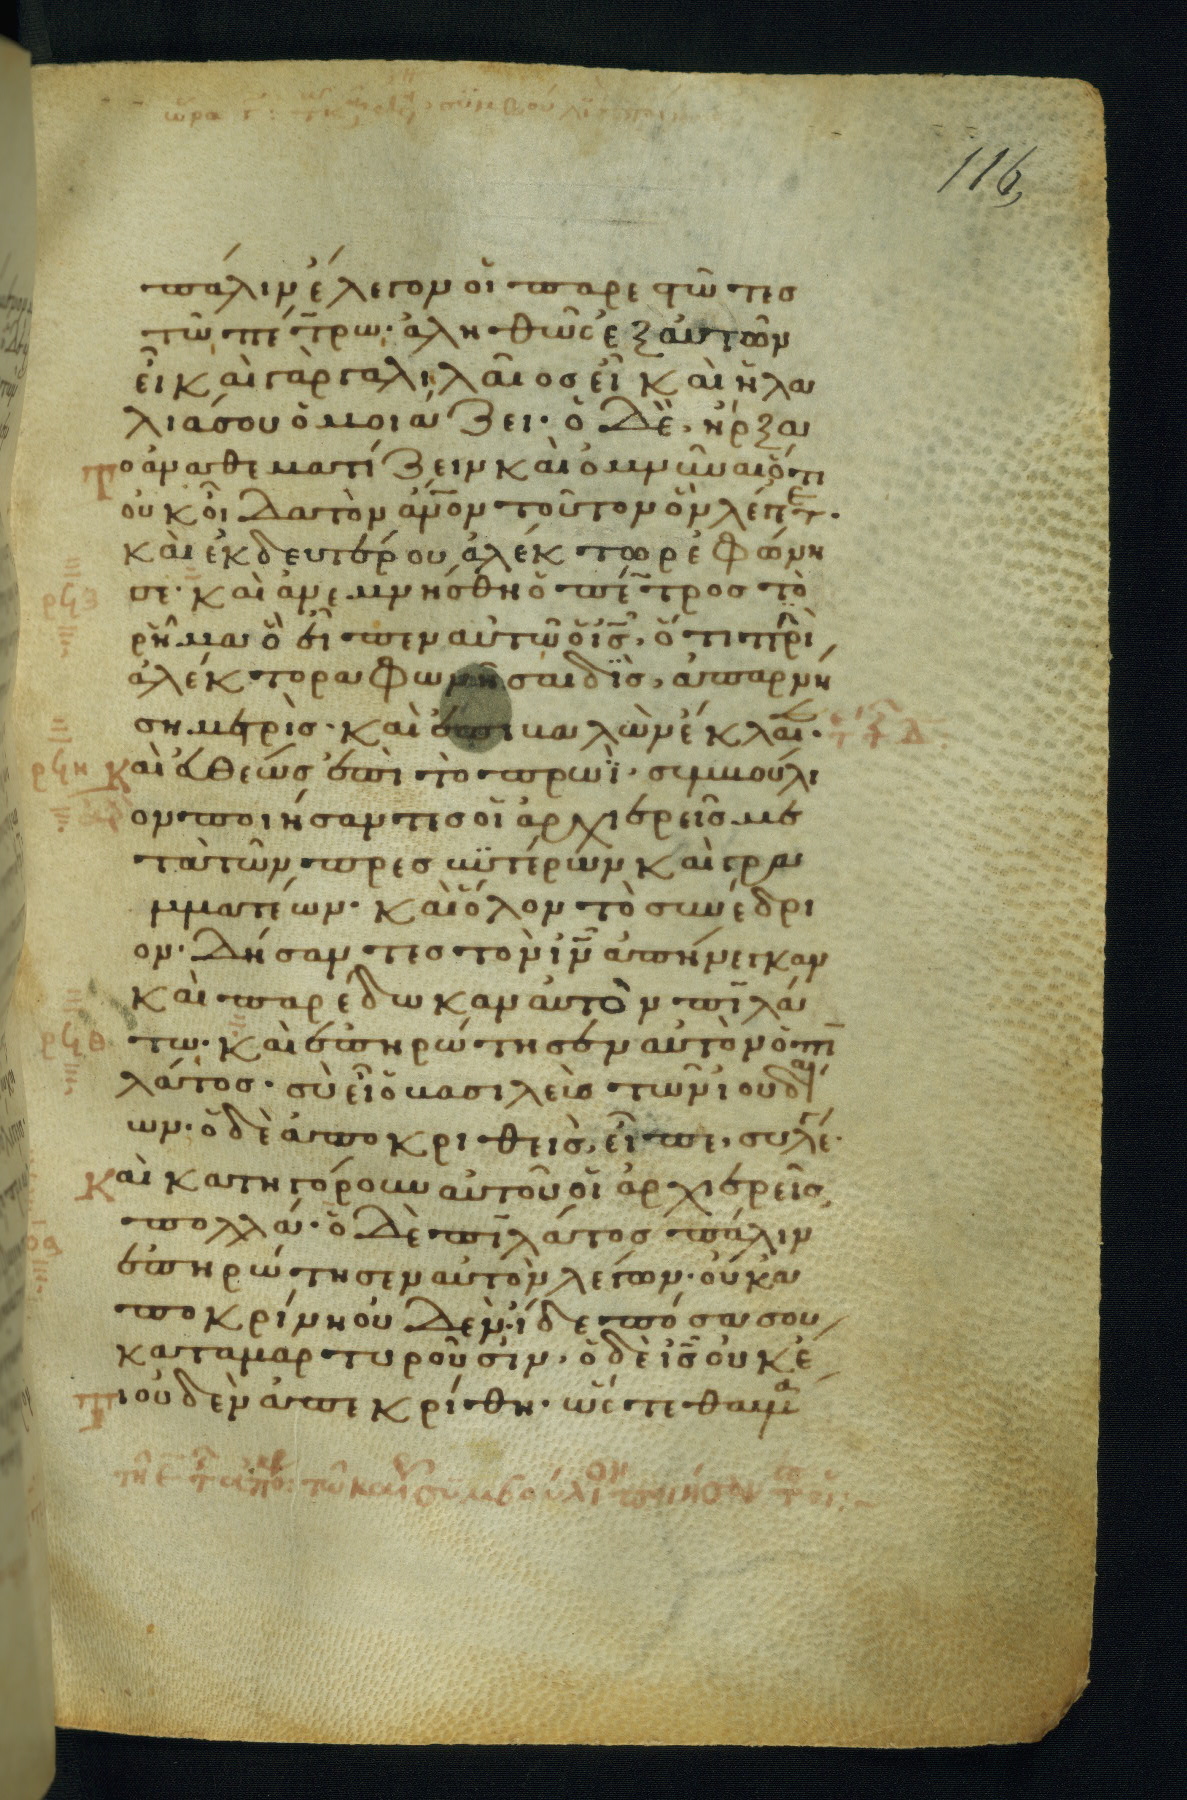 116
πάλιν ἔλεγον οἱ παρεστῶτες
τῶ πέτρω· ἀληθῶς ἐξ αὐτῶν
εἶ καὶ γὰρ γαλιλαῖος εἶ καὶ ἡ λα
λιά σου ὁμοιάζει· ὁ δὲ, ἤρξα
το ἀναθεματίζειν καὶ ὀμνύναι ὅτι
οὐκ οἶδα τὸν ἄνον τοῦτον ὃν λέγετ·
καὶ ἐκ δευτέρου ἀλέκτωρ ἐφώνη
σε· καὶ ἀνεμνήσθη ὁ πέτρος τὸ
ῥῆμα ὃ εἶπεν αὐτῶ ὁ ἰς, ὅτι πρὶ
ἀλέκτορα φωνῆσαι δὶς, ἀπαρνή
ση με τρὶς· καὶ ἐπιβαλὼν ἔκλαι·
ρϟη Καὶ εὐθέως ἐπὶ τὸ πρωῒ· συμβούλι
ον ποιήσαντες οἱ ἀρχιερεῖς με
τὰ τῶν πρεσβϋτέρων καὶ γρα
μματέων· καὶ ὅλον τὸ συνέδρι
ον· δήσαντες τὸν ἰν ἀπήνεγκαν
καὶ παρέδωκαν αὐτὸν πϊλά
ρϟθ τω· καὶ ἐπηρώτησεν αὐτὸν ὁ πι
λάτος· σὺ εἶ ὁ βασιλεὺς τῶν ἰουδαί
ων· ὁ δὲ ἀποκριθεὶς, εἶπε, συ λέγ·
Καὶ κατηγόρουν αὐτοῦ οἱ ἀρχιερεῖς
πολλά· ὁ δὲ πϊλάτος πάλιν
ἐπηρώτησεν αὐτὸν λέγων· οὐκ ἀ
ποκρίνη οὐδέν· ἴδε πόσα σου
καταμαρτυροῦσιν· ὁ δὲ ἰς οὐκέ
τι οὐδὲν ἀπεκρίθη· ὥστε θαυμα